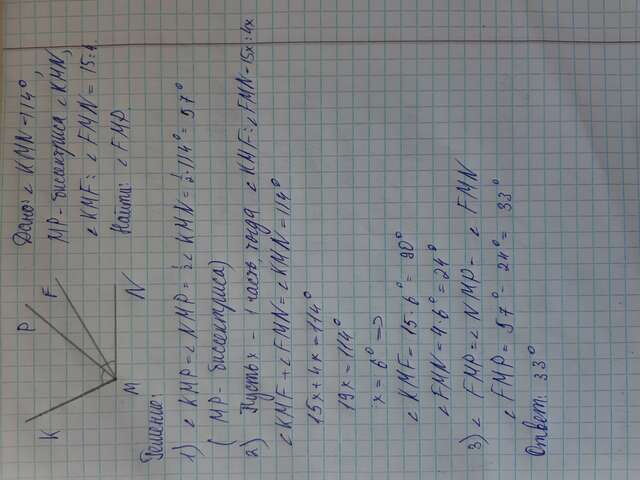 K
P
F
M
N
Дано: ∠ KMN=114°,
MP - биссектриса ∠ KMN,
∠ KMF : ∠ FMN = 15:4.
Найти: ∠ FMP.
Решение:
1) ∠ KMP = ∠ NMP = 1/2 ∠ KMN = 1/2 · 114° = 57°
( MP - биссектриса)
2) Пусть x - 1 часть, тогда ∠ KMF : ∠ FMN = 15x : 4x
∠ KMF + ∠ FMN = ∠ KMN = 114°
15x + 4x = 114°
19x = 114°
x = 6° ⇒
∠ KMF = 15 · 6° = 90°
∠ FMN = 4 · 6° = 24°
3) ∠ FMP = ∠ NMP - ∠ FMN
∠ FMP = 57° - 24° = 33°
Ответ: 33°